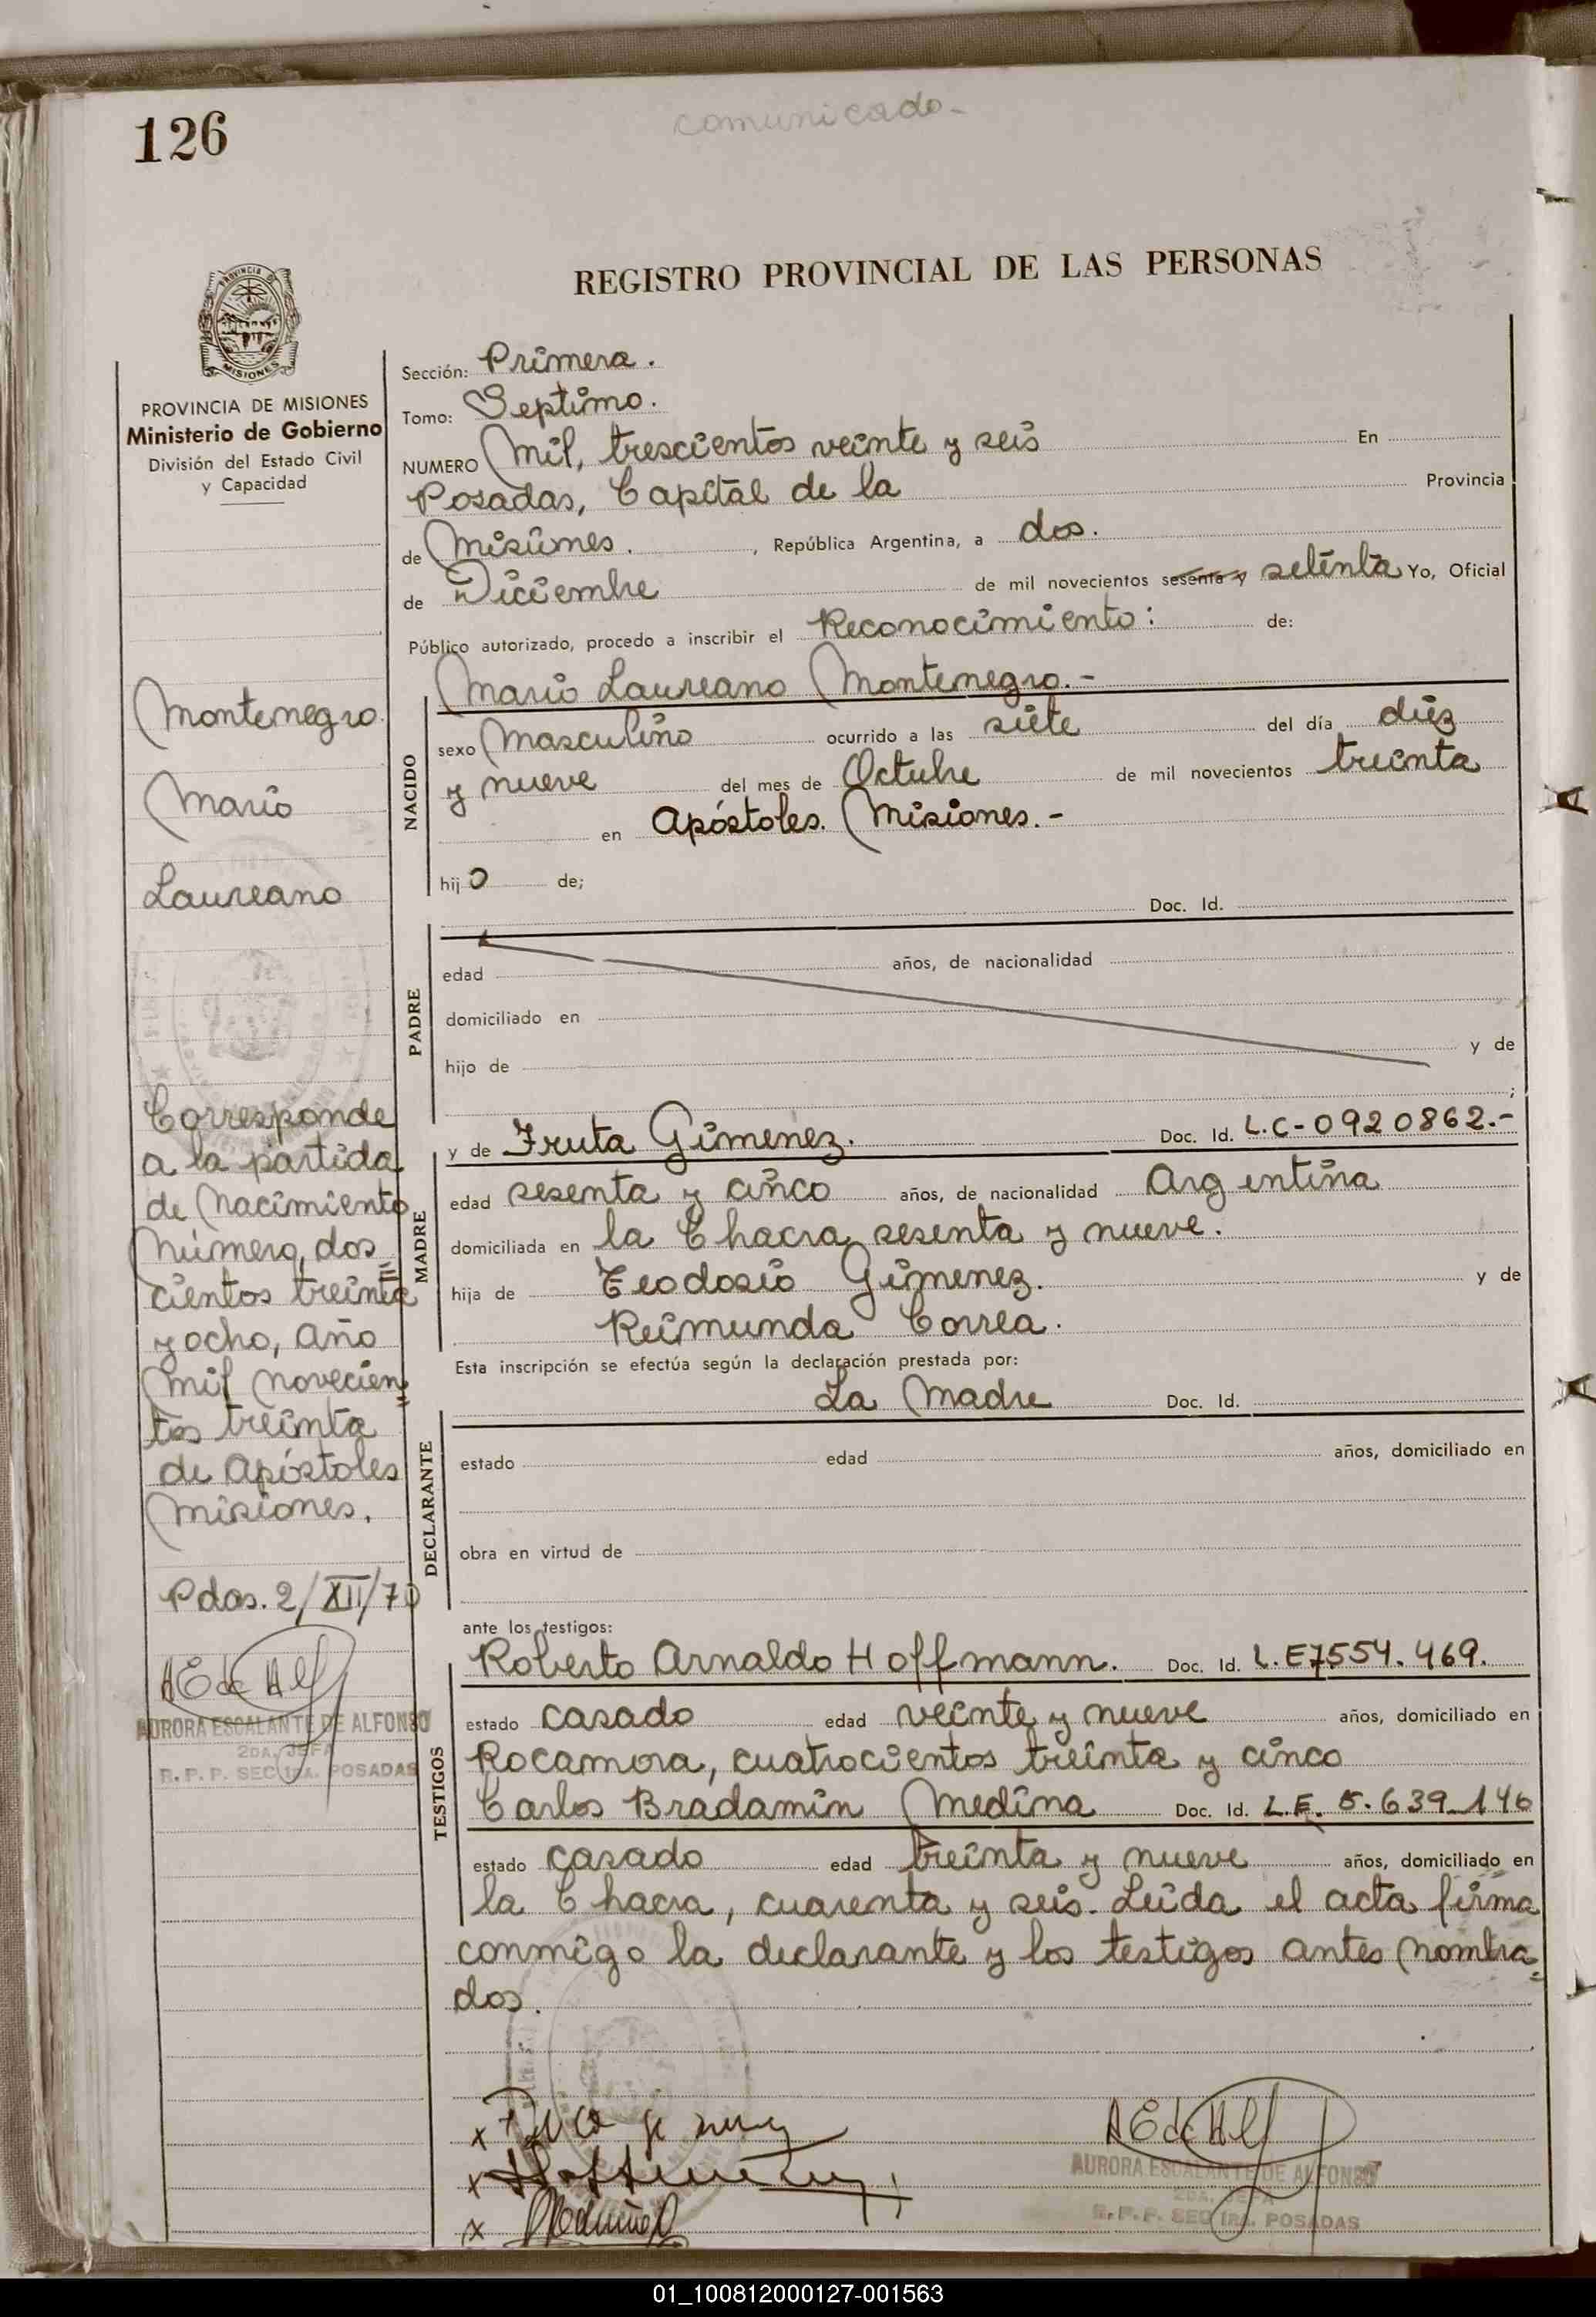 126
comunicado-
REGISTRO PROVINCIAL DE LAS PERSONAS
PROVINCIA DE MISIONES
Ministerio de Gobierno
División del Estado Civil
y Capacidad
Montenegro
Mario
Laureano
Corresponde
a la partida
de Nacimiento
Número, dos
cientos treinta
y ocho, Año
mil novecien
tos treinta
de Apóstoles
Misiones.
Pdas. 2/XII/70
AURORA ESCALANTE DE ALFONSO
2DA. JEFA
R.P.P. SEC 1RA. POSADAS
Sección: Primera.
Tomo: Septimo.
NUMERO Mil, trescientos veinte y seis En
Posadas, Capital de la Provincia
de Misiones. , República Argentina, a dos.
de Diciembre de mil novecientos sesenta y setenta Yo, Oficial
Público autorizado, procedo a inscribir el Reconocimiento: de:
Mario Laureano Montenegro.-
NACIDO
sexo Masculino ocurrido a las siete del día diez
y nueve del mes de Octubre de mil novecientos treinta
en Apóstoles. Misiones.-
hijo de;
Doc. Id.
PADRE
edad años, de nacionalidad
domiciliado en
hijo de y de
;
MADRE
y de Fruta Gimenez. Doc. Id. L.C-0920862.-
edad sesenta y cinco años, de nacionalidad Argentina
domiciliada en la Chacra sesenta y nueve.
hija de Teodosio Gimenez. y de
Reimunda Correa.
Esta inscripción se efectúa según la declaración prestada por:
La Madre Doc. Id.
DECLARANTE
estado edad años, domiciliado en
obra en virtud de
ante los testigos:
TESTIGOS
Roberto Arnaldo Hoffmann. Doc. Id. L.E7554.469.
estado casado edad veinte y nueve años, domiciliado en
Rocamora, cuatrocientos treinta y cinco
Carlos Bradamin Medina Doc. Id. L.E. 5.639_146
estado casado edad treinta y nueve años, domiciliado en
la Chacra, cuarenta y seis. Leida el acta firma
conmigo la declarante y los testigos antes nombra=
dos.
AURORA ESCALANTE DE ALFONSO
2DA. JEFA
R.P.P. SEC 1RA. POSADAS
01_100812000127-001563